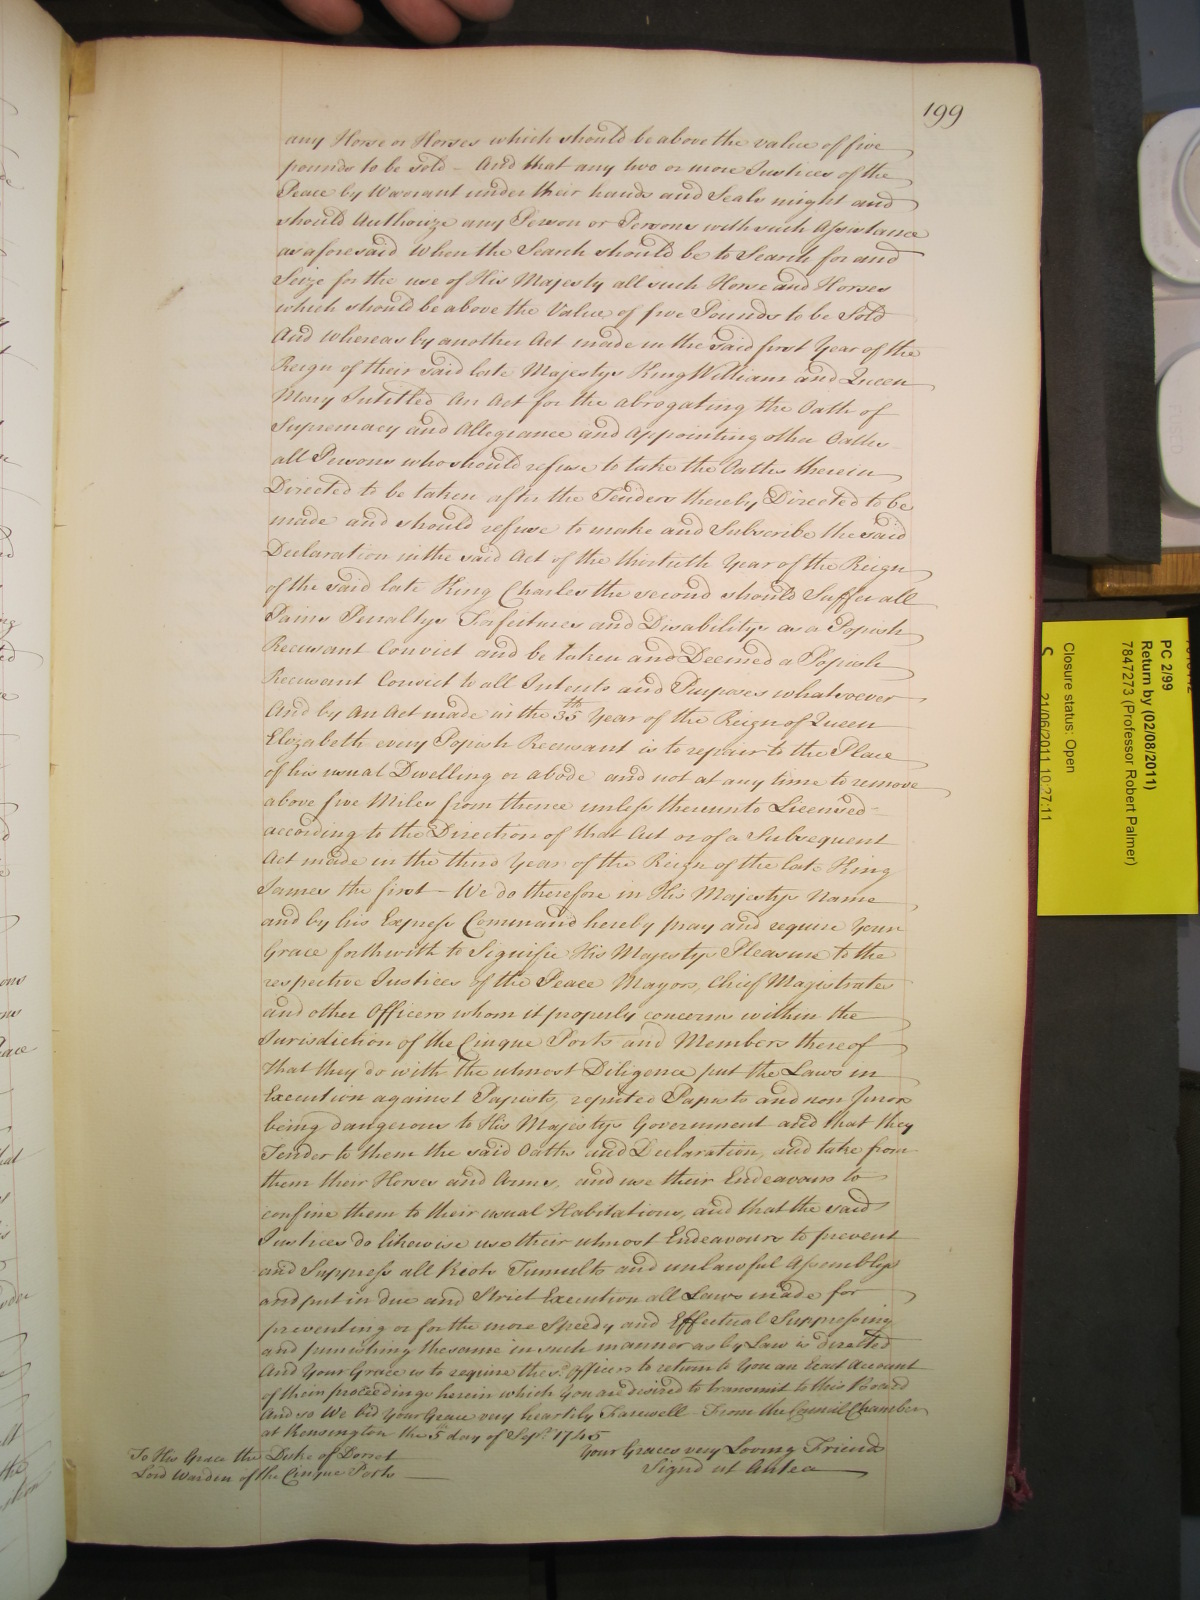 199
any Horse or Horses which should be above the value of five
pounds to be sold - And that any two or more Justices of the
Peace by Warrant under their hands and Seals might and
should Authorize any Person or Persons with such Assistance
as aforesaid When the Search should be to Search for and
Seize for the use of His Majesty all such Horse and Horses
which should be above the Value of five Pounds to be Sold
And whereas by another Act made in the said first Year of the
Reign of their said late Majestys King William and Queen
Mary Intitled An Act for the abrogating the Oath of
Supremacy and Allegiance and Appointing other Oaths
all Persons who should refuse to take the Oaths therein
Directed to be taken after the Tenders thereby Directed to be
made and should refuse to make and Subscribe the said
Declaration in the said Act of the thirtieth Year of the Reign
of the said late King Charles the second should Suffer all
Pains Penaltys Forfeitures and Disabilitys as a Popish
Recusant Convict and be taken and Deemed a Popish
Recusant Convict to all Intents and Purposes whatsoever
And by An Act made in the 35th Year of the Reign of Queen
Elizabeth every Popish Recusant is to repair to the Place
of his usual Dwelling or abode and not at any time to remove
above five Miles from thence unless thereunto Licensed
according to the Direction of that Act or of a Subsequent
Act made in the third Year of the Reign of the late King
James the first - We do therefore in His Majestys Name
and by his Express Command hereby pray and require Your
Grace forthwith to Signifie His Majestys Pleasure to the
respective Justices of the Peace Mayors, Chief Magistrates
and other Officers whom it properly concerns within the
Jurisdiction of the Cinque Ports and Members thereof
that they do with the utmost Diligence put the Laws in
Execution against Papists, reputed Papists and non Jurors
being dangerous to His Majestys Government and that they
Tender to them the said Oaths and Declaration, and take from
them their Horses and Arms, and use their Endeavours to
confine them to their usual Habitations, and that the said
Justices do likewise use their utmost Endeavours to prevent
and Suppress all Riots Tumults and unlawful Assemblys
and put in due and Strict Execution all Laws made for
preventing or for the more Speedy and Effectual Suppressing
and punishing the same in such manner as by Law is directed
And Your Grace is to require the sd. Officers to return to You an Exact Account
of their proceedings herein which You are desired to transmit to this Board
And so We bid Your Grace very heartily Farewell - From the Council Chamber
at Kensington the 5th day of Sept. 1745
Your Graces very Loving Friends
Signd ut Antea
To His Grace the Duke of Dorset
Lord Warden of the Cinque Ports
PC 2/99
Return by (02/08/2011)
7847273 (Professor Robert Palmer)
Closure status: Open
21/06/2011 10:27:11